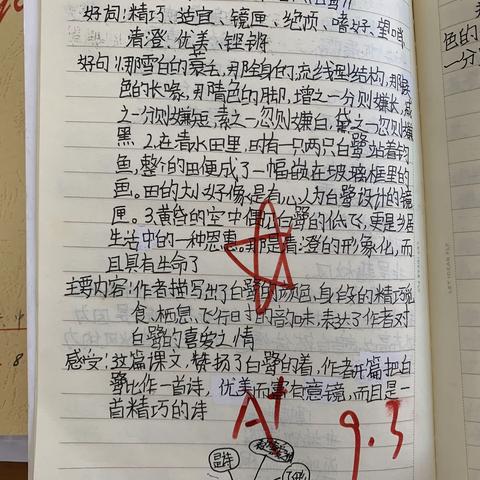 好词:精巧、适宜、镜匣、绝顶、嗜好、望哨
清澄、优美、铿锵
好句:1.那雪白的蓑毛,那全身的流线型结构,那
色的长喙,那青色的脚,增之一分则嫌长,减
之一分则嫌短,素之一忽则嫌白,黛之一忽则嫌
黑 2.在清水田里,时有一只两只白鹭站着钓
鱼,整个的田便成了一幅嵌在玻璃框里的
画。田的大小好像是有心人为白鹭设计的镜
匣。3.黄昏的空中偶见白鹭的低飞,更是乡居
生活中的一种恩惠。那是清澄的形象化,而
且具有生命了
主要内容:作者描写出了白鹭的颜色、身段的精巧,
食、栖息、飞行时的韵味,表达了作者对
白鹭的喜爱之情
感受:这篇课文,赞扬了白鹭的着,作者开篇把白
鹭比作一首诗,优美而富有意镜,而且是一
首精巧的诗
A+
9.3